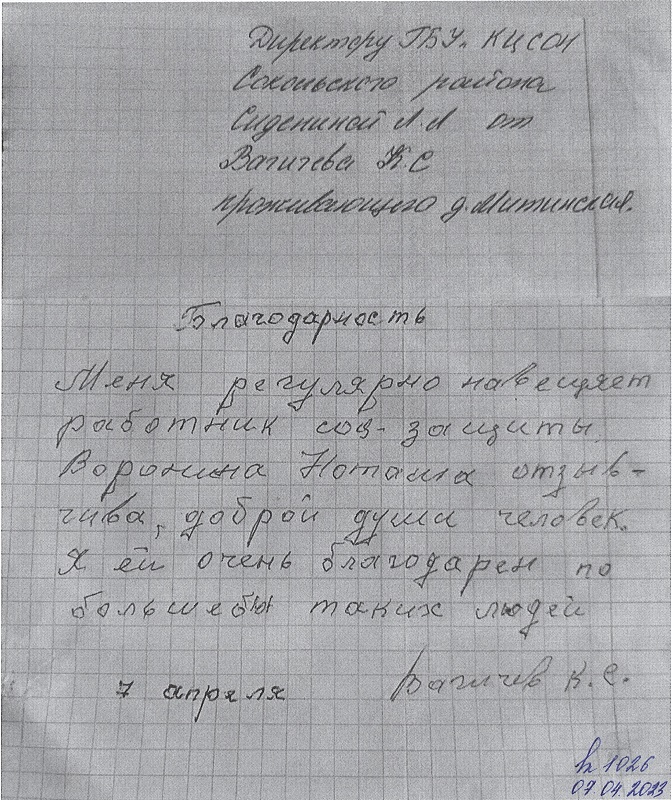 Директору ГБУ. КЦСОН
Сокольского района
Сидениной Л.Л от
Вагичева К.С
проживающего д.Митинская.
Благодарность
Меня регулярно навещяет
работник соц-защиты.
Воронина Наталия отзыв-
чива, доброй души человек.
Я ей очень благодарен по
большебы таких людей
7 апреля Вагичев К.С.
1026
07.04.2023